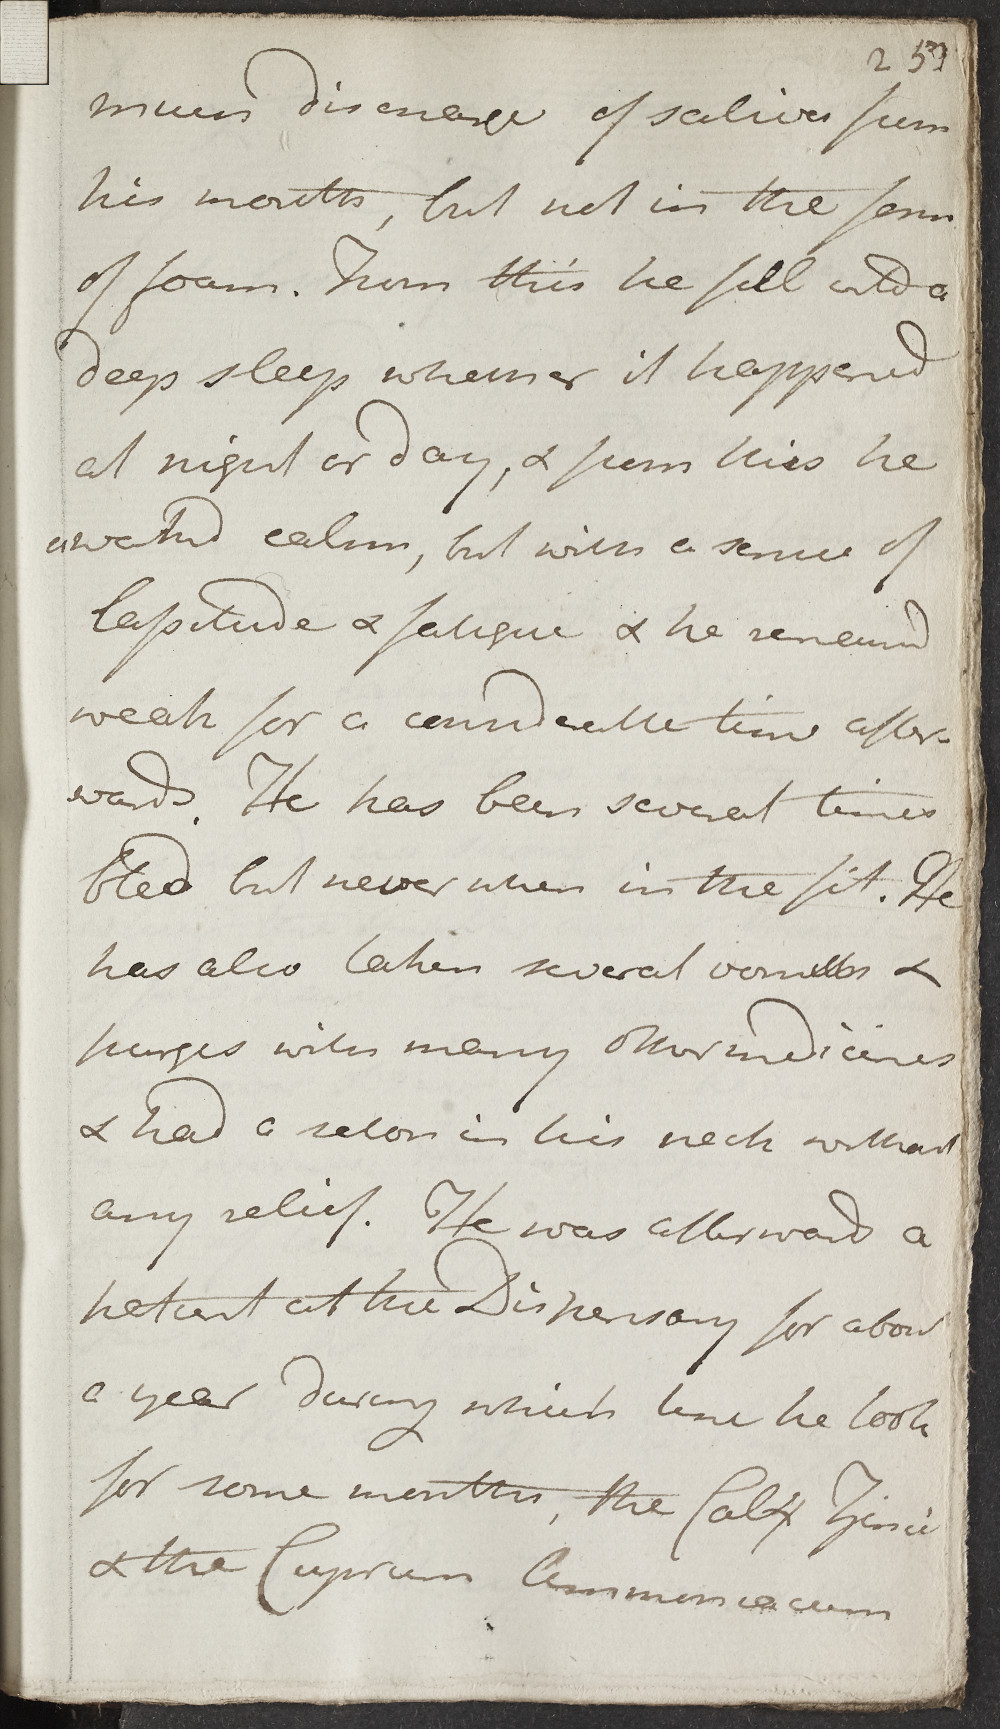 253
much discharge of saliva from
his mouth, but not in the form
of foam. From this he fell into a
deep sleep whether it happened
at night or day, & from this he
awaked calm, but with a sense of
lassitude & fatigue & he remained
weak for a considerable time after-
wards. He has been several times
bled but never when in the fit. He
has also taken several vomits &
purges with many other medicines
& had a seton in his neck without
any relief. He was afterwards a
patient at the Dispensary for about
a year during which time he took
for some months, the Calx Zinci
& the Cuprum Ammoniacum